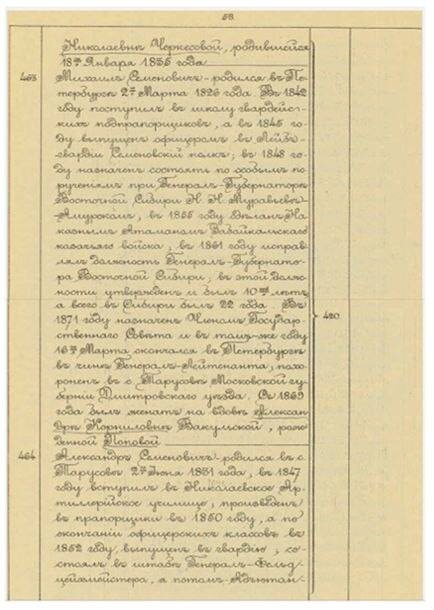 58.
Николаевнѣ Черкесовой, родившейся
18го Января 1835 года
463 Михаилъ Семеновичъ - родился въ Пе-
тербургѣ 2го Марта 1826 года. Въ 1842
году поступилъ въ школу гвардейс-
кихъ подпрапорщиковъ, а въ 1845 го-
ду выпущенъ офицеромъ въ Лейбъ-
гвардіи Семеновскій полкъ; въ 1848 го-
ду назначенъ состоять по особымъ по-
рученіямъ при Генералъ-Губернаторѣ
Восточной Сибири Н. Н. Муравьевѣ
-Амурскомъ, въ 1855 году сдѣланъ На-
казнымъ Атаманомъ Забайкальскаго
казачьяго войска; въ 1861 году исправ-
лялъ должность Генералъ-Губернато-
ра Восточной Сибири; въ этой долж-
ности утвержденъ и былъ 10ть лѣтъ,
а всего въ Сибири былъ 22 года. Въ
1871 году назначенъ Членомъ Государ- 420.
ственнаго Совѣта и въ томъ-же году
16го Марта скончался въ Петербургѣ
въ чинѣ Генералъ-Лейтенанта; похо-
роненъ въ с. Тарусовѣ Московской гу-
берніи Дмитровскаго уѣзда. Съ 1869
года былъ женатъ на вдовѣ Алексан
дрѣ Корниловнѣ Вакульской, рож-
денной Поповой
464 Александръ Семеновичъ родился въ с.
Тарусовѣ 2го Іюня 1831 года, въ 1847
году вступилъ въ Николаевское Ар-
тиллерійское училище, произведенъ
въ прапорщики въ 1850 году, а по
окончаніи офицерскихъ классовъ въ
1852 году, выпущенъ въ гвардію; со-
стоялъ въ штабѣ Генералъ-Фельд-
цейхмейстера, а потомъ Адъютан-